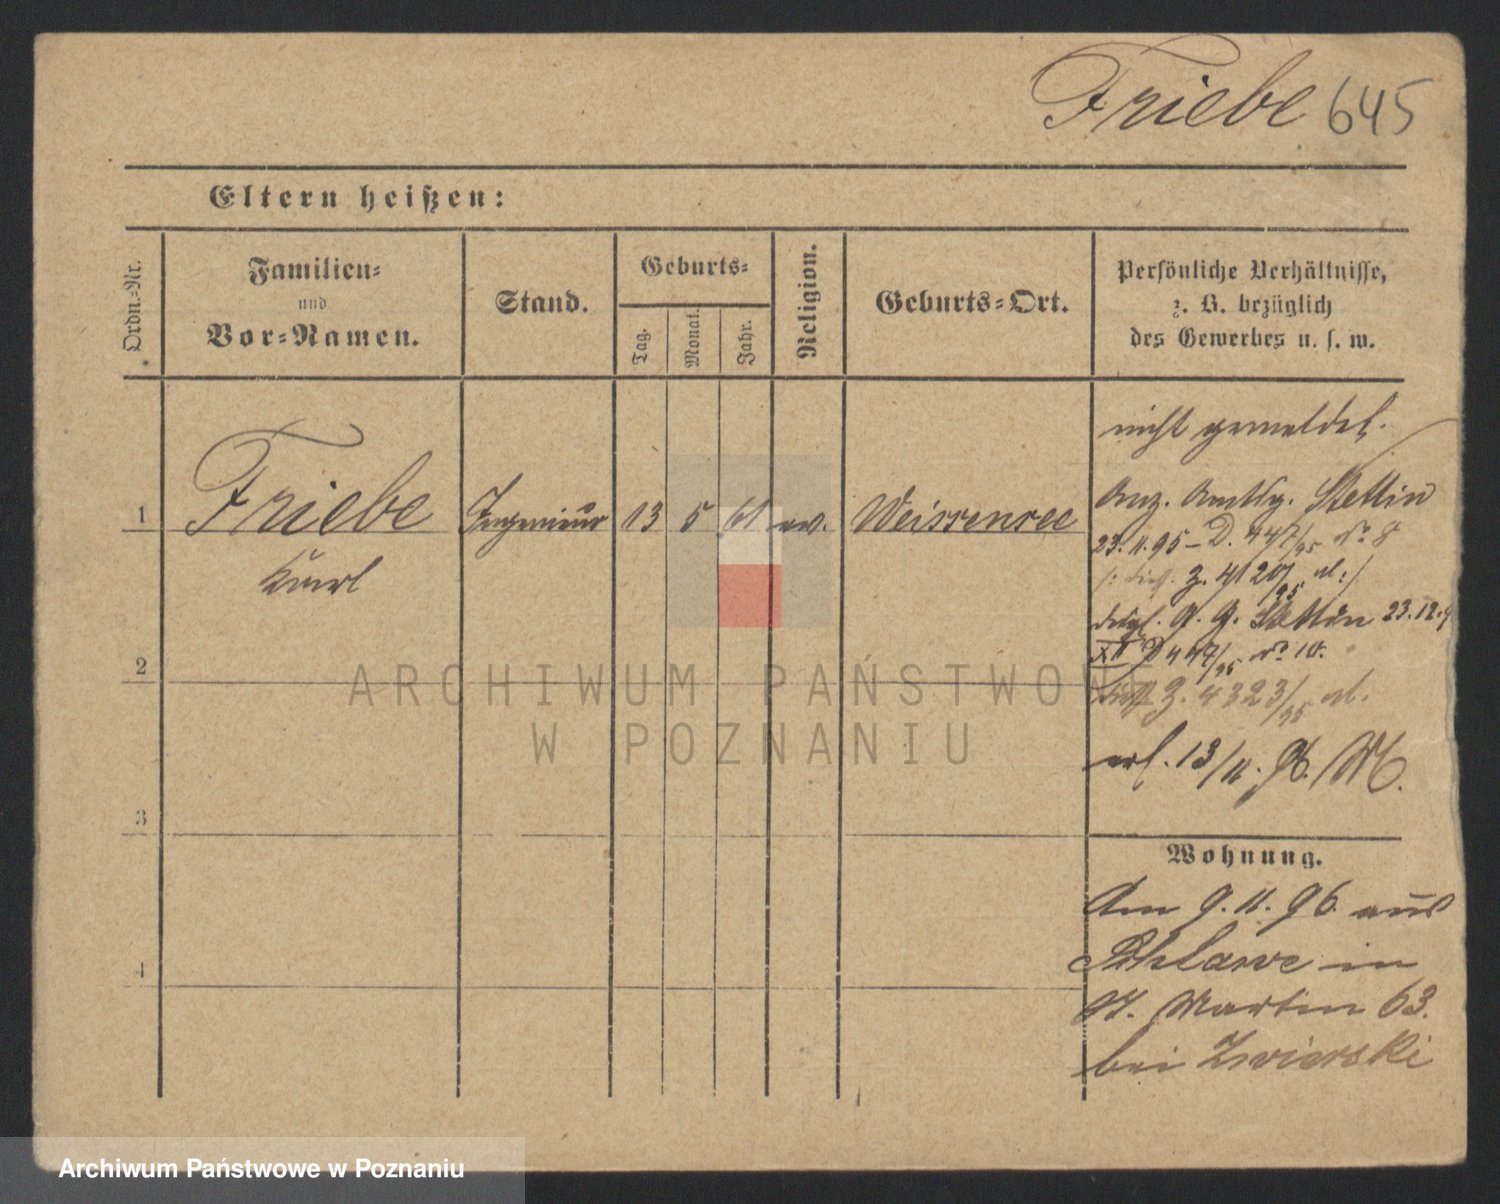 Friebe 645
Eltern heißen:
Ordn.-Nr.
Familien-
und
Vor-Namen.
Stand.
Geburts-
Tag.
Monat.
Jahr.
Religion.
Geburts-Ort.
Persönliche Verhältnisse,
z. B. bezüglich
des Gewerbes u. s. w.
nicht gemeldet.
1 Friebe Ingenieur 13 5 61 ev. Weissensee
Karl
Anz. Amtsg. Stettin
23.11.95 - D. 447/95 No 8
Z. 4120/95
desgl. A. G. Stettin 23.12.9
XII D 447/95 No 10.
Z. 4323/95
erl. 13/11. 96. M.
2
3
4
Wohnung.
Am 9.11.96. aus
Schlawe in
St. Martin 63.
bei Zwierski
ARCHIWUM PAŃSTWOWE
W POZNANIU
Archiwum Państwowe w Poznaniu